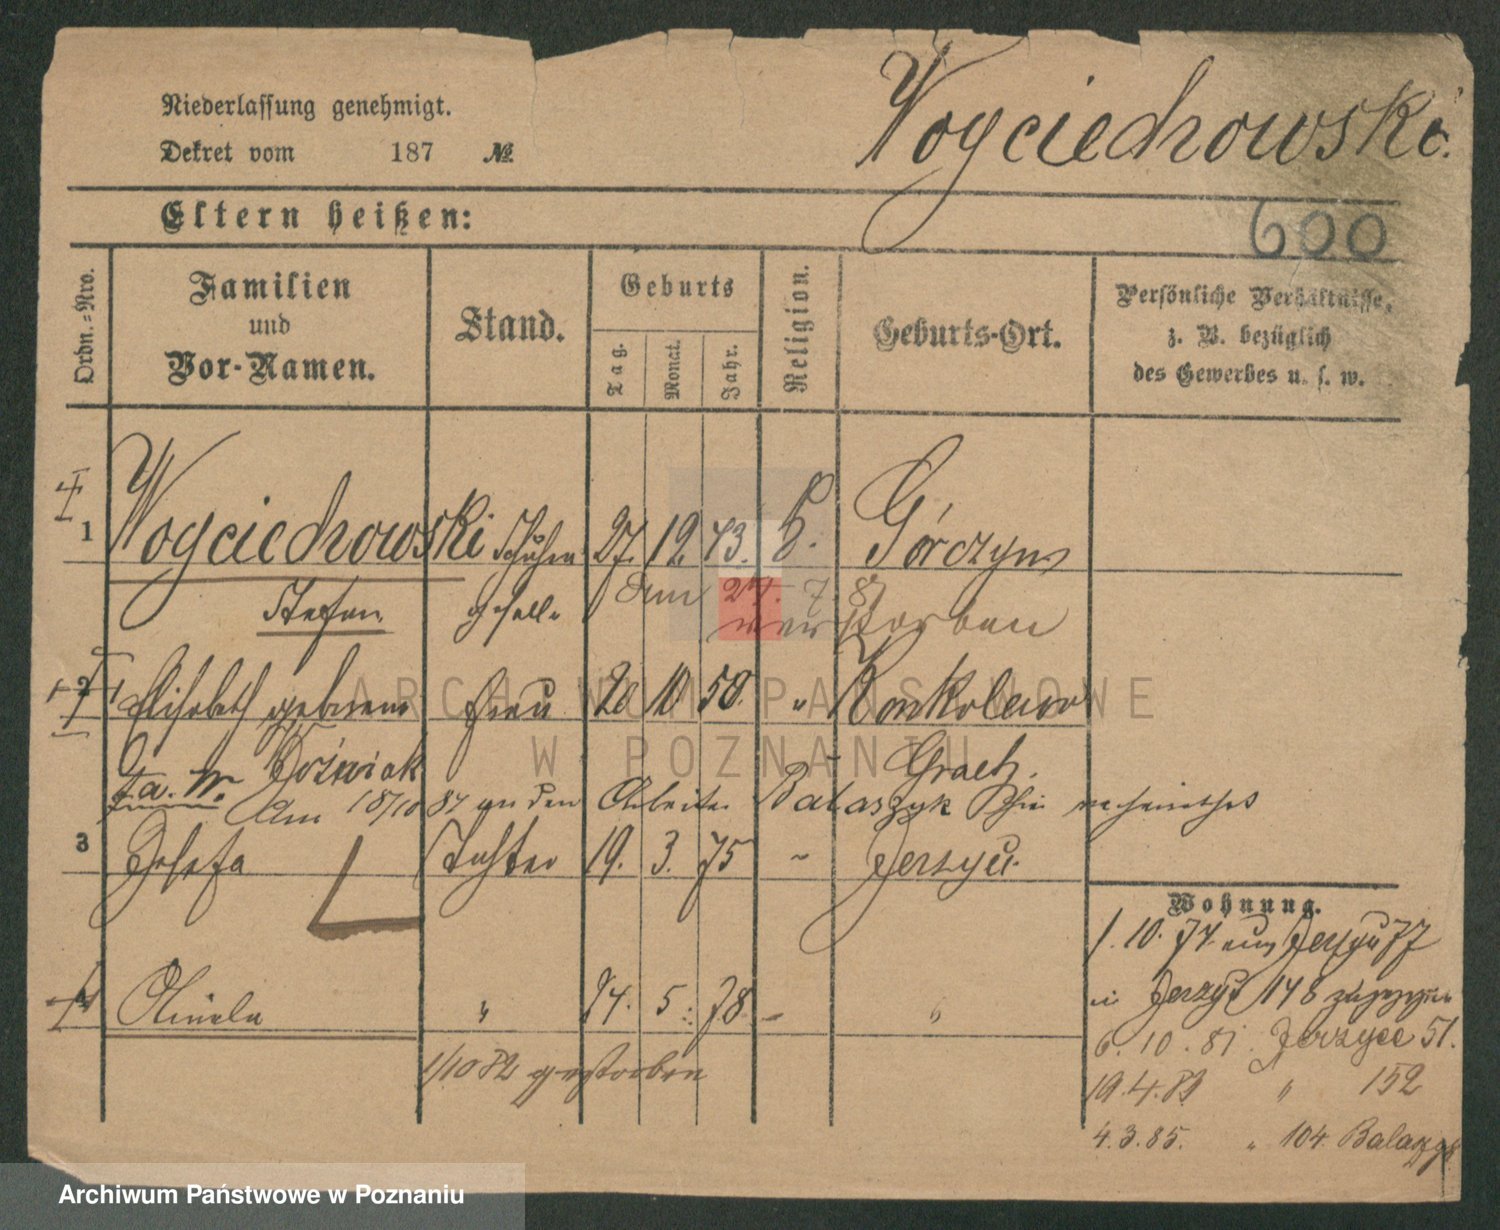 Niederlassung genehmigt.
Dekret vom 187 №
Woyciechowski.
Eltern heißen:
600
Ordn.-Nro.
Familien und Vor-Namen.
Stand.
Geburts
Tag.
Monat.
Jahr.
Religion.
Geburts-Ort.
Persönliche Verhältnisse, z. B. bezüglich des Gewerbes u. s. w.
1 Woyciechowski 27. 12. 43. Górczyn
Stefan geselle am 27. 7. 8
verstorben
2 Elisabeth geborene Frau 20 10 50. " Konkolewo
Woźniak Graetz.
Am 18/10 87 an den Arbeiter Balaszyk
3 Josefa Tochter 19. 3. 75 " Jerzyce.
4 " 24. 5. 78
1/10 82 gestorben
Wohnung.
1. 10. 74 aus Jerzyce 77
in Jerzyce 148 zugezogen
6. 10. 81. Jerzyce 51.
19. 4. 83 " 152
4. 3. 85. " 104 Balaszyk
ARCHIWUM PAŃSTWOWE
W POZNANIU
Archiwum Państwowe w Poznaniu